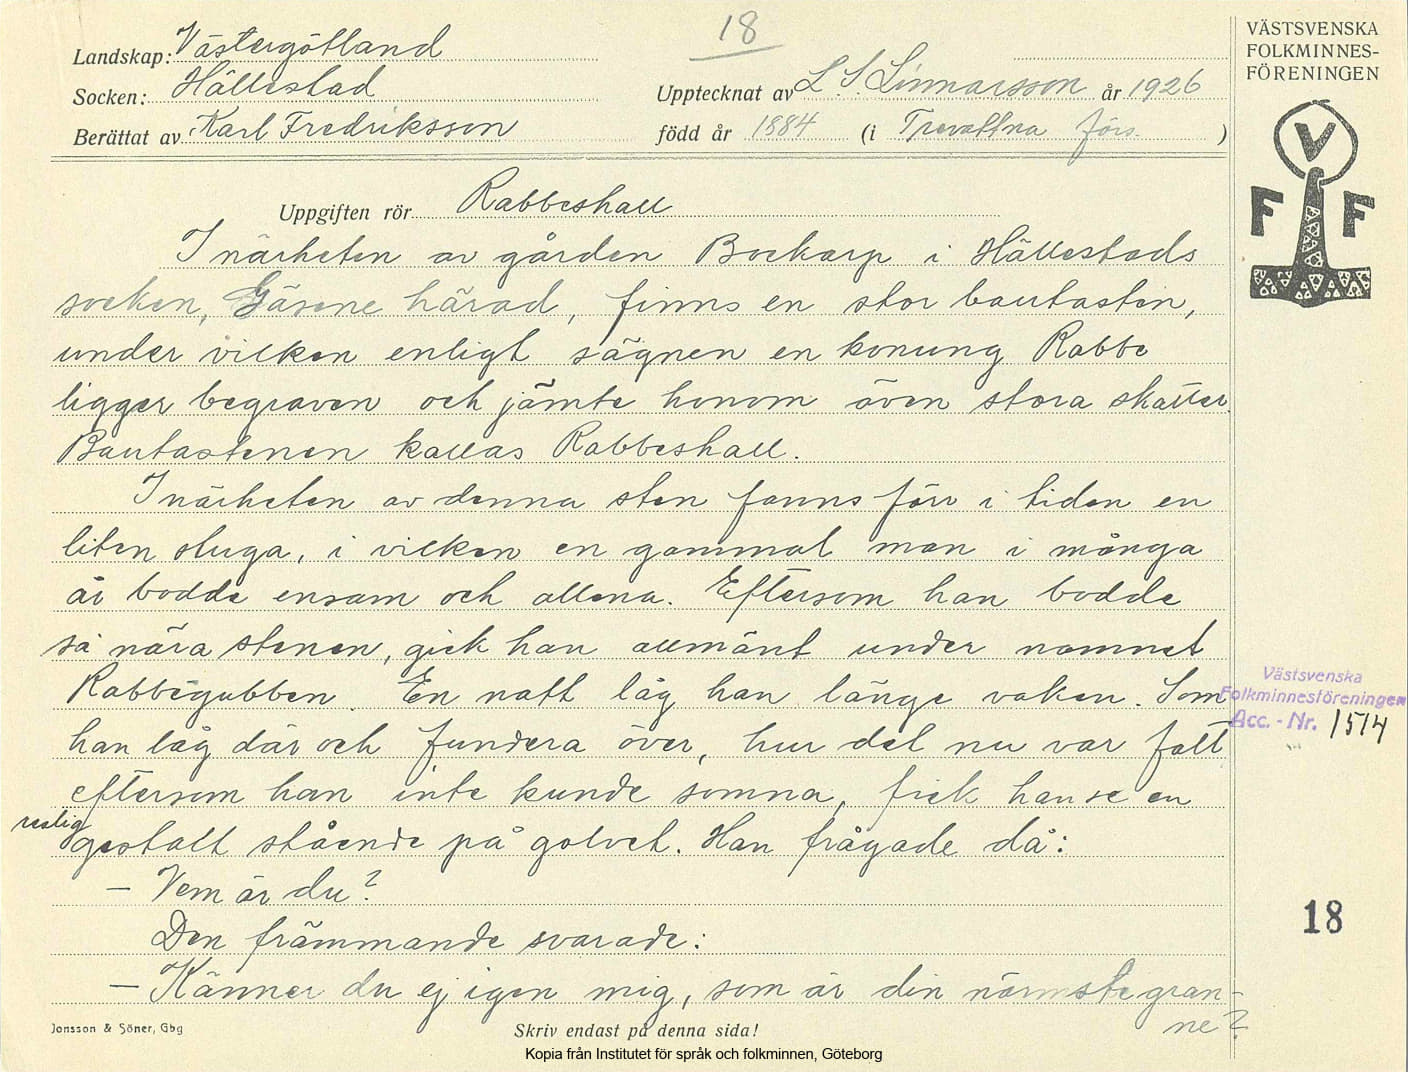 18
Landskap: Västergötland
Socken: Hällestad
Berättat av Karl Fredriksson
Upptecknat av L S Linnarsson år 1926
född år 1884 (i Trevattna förs. )
VÄSTSVENSKA
FOLKMINNES-
FÖRENINGEN
V
F F
Uppgiften rör Rabbeshall
I närheten av gården Bockarp i Hällestads
socken, Gäsene härad, finns en stor bautasten,
under vilken enligt sägnen en konung Rabbe
ligger begraven och jämte honom även stora skatter.
Bautastenen kallas Rabbeshall.
I närheten av denna sten fanns förr i tiden en
liten stuga, i vilken en gammal man i många
år bodde ensam och allena. Eftersom han bodde
så nära stenen, gick han allmänt under namnet
Rabbegubben. En natt låg han länge vaken. Som
han låg där och fundera över, hur det nu var fatt
eftersom han inte kunde somna, fick han se en
reslig gestalt stående på golvet. Han frågade då:
– Vem är du?
Den främmande svarade:
– Känner du ej igen mig, som är din närmste gran-
ne?
Västsvenska
Folkminnesföreningen
Acc. - Nr. 1514
18
Jonsson & Söner, Gbg
Skriv endast på denna sida!
Kopia från Institutet för språk och folkminnen, Göteborg